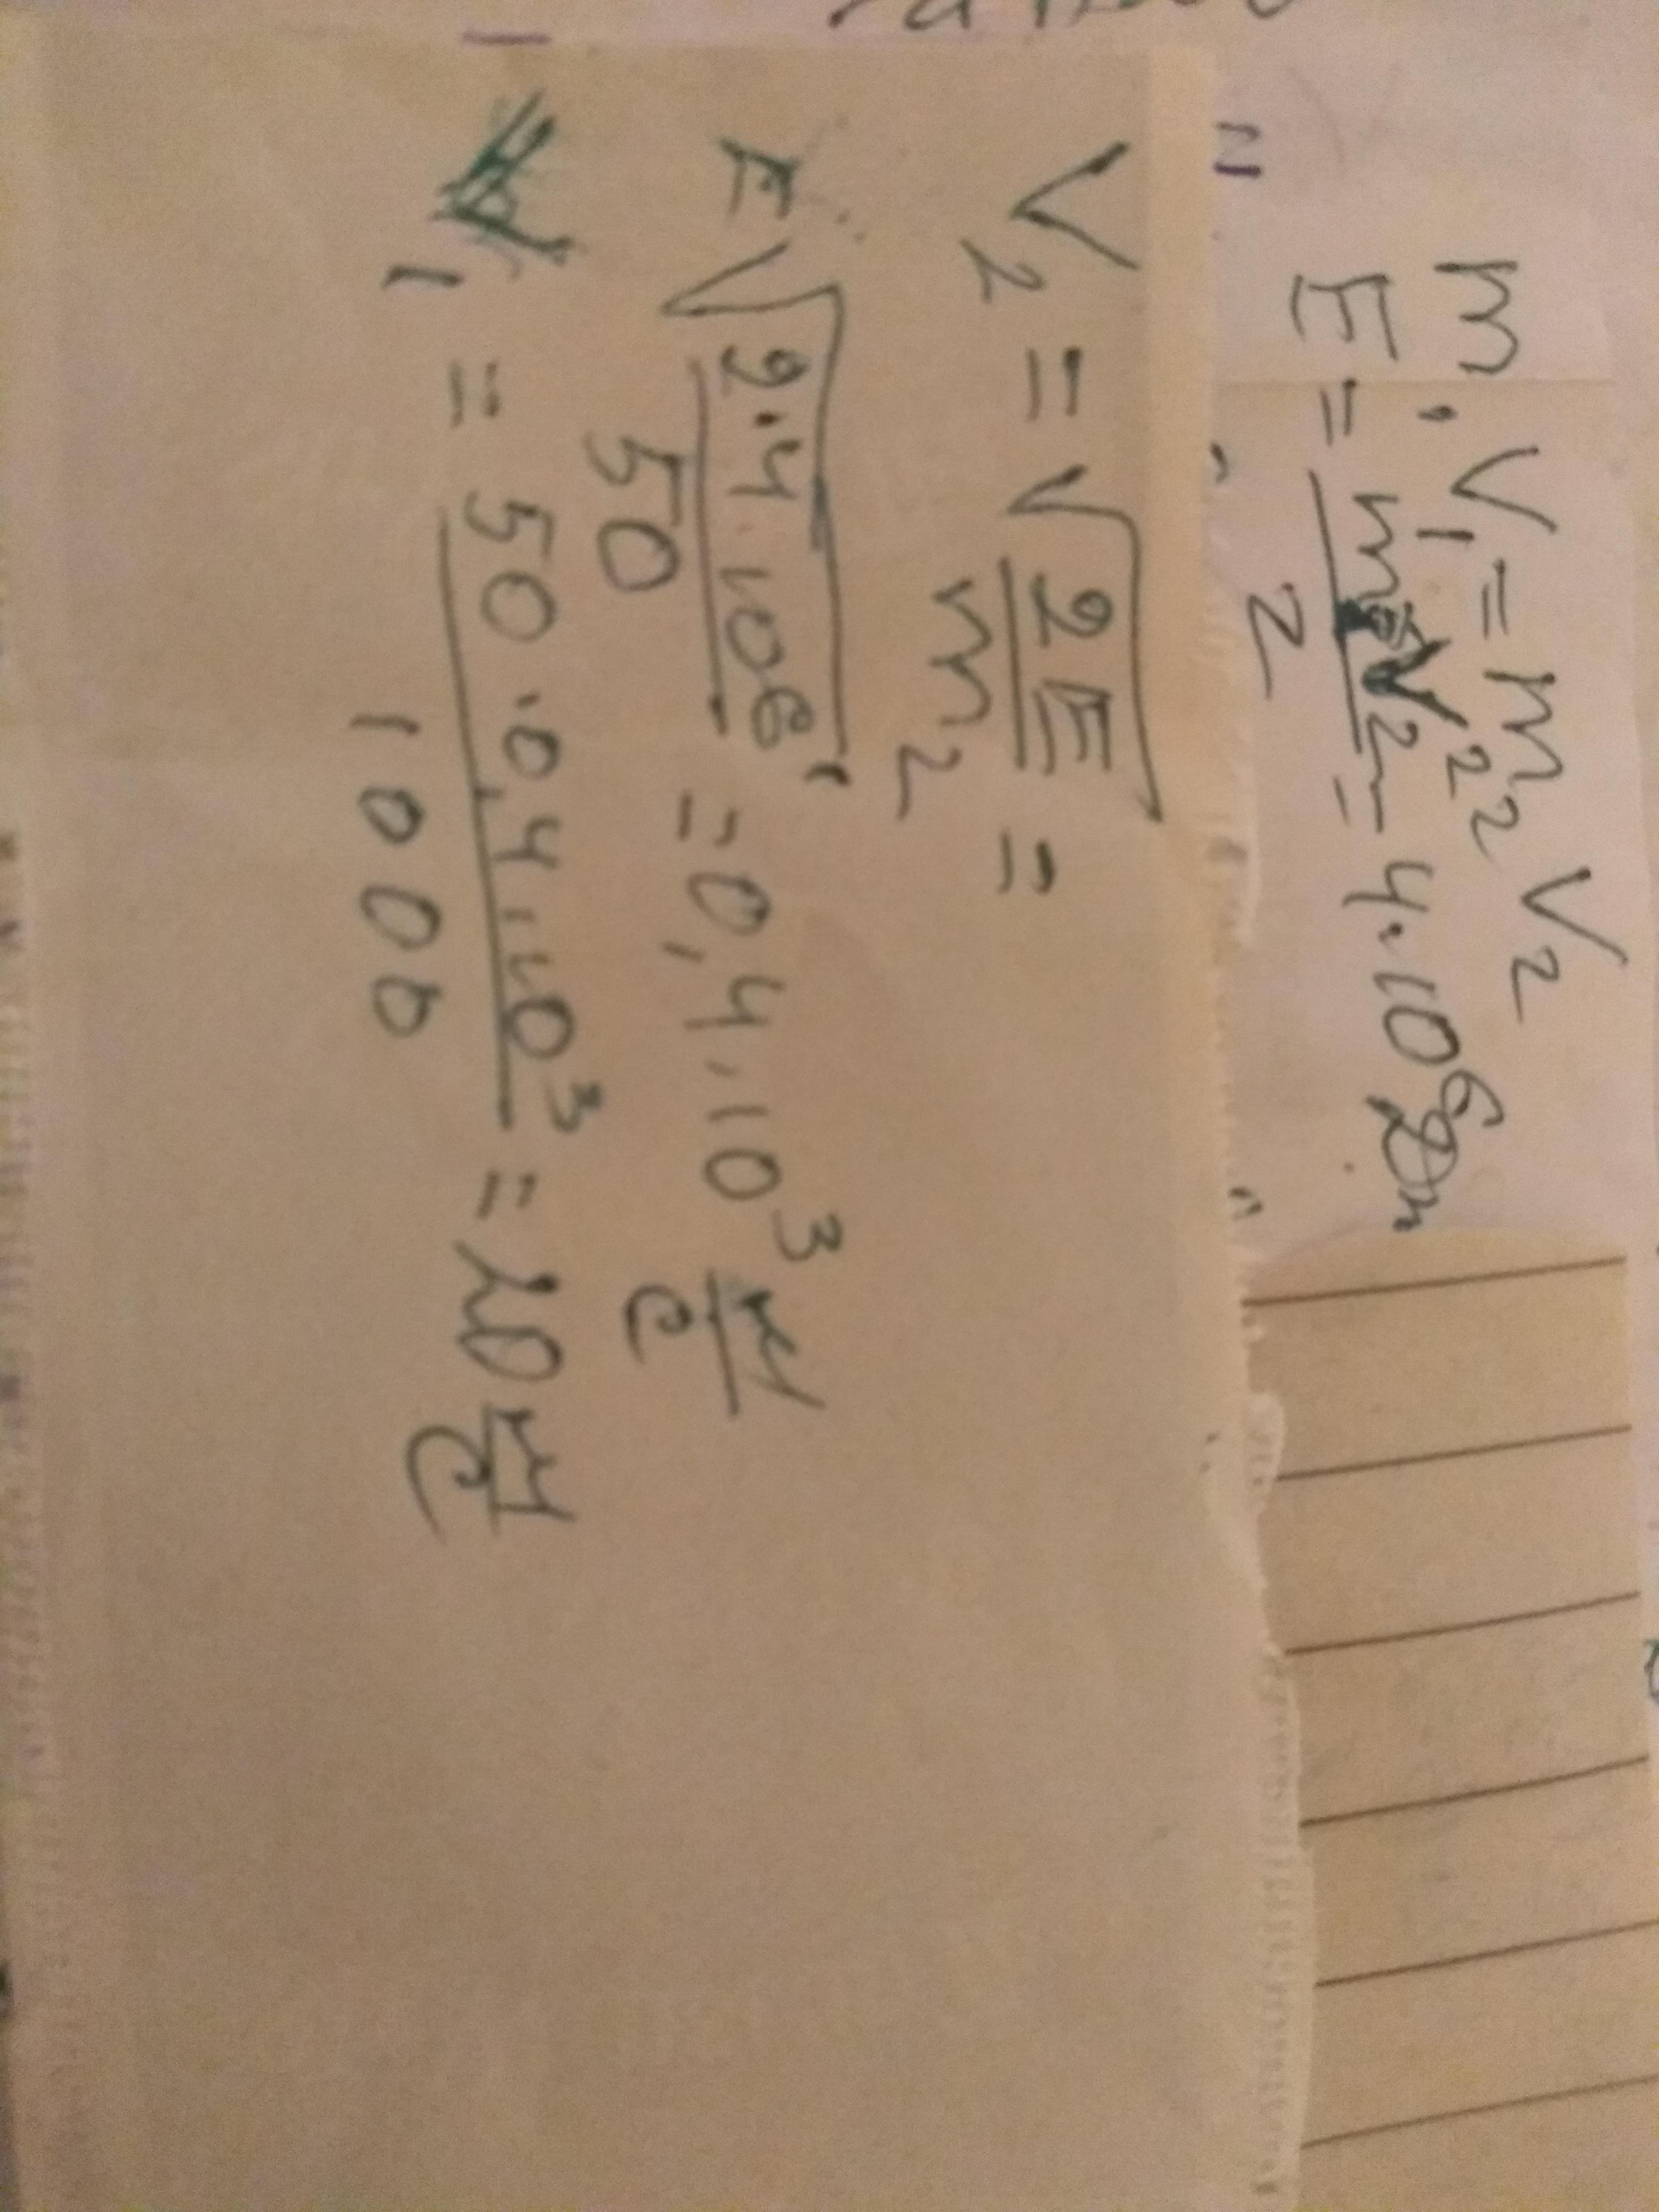 m₁V₁ = m₂V₂
E = m₂V₂²/2 = 4·10⁶ Дж
V₂ = √(2E/m₂) =
= √(2·4·10⁶/50) = 0,4·10³ м/с
V₁ = 50·0,4·10³/1000 = 20 м/с